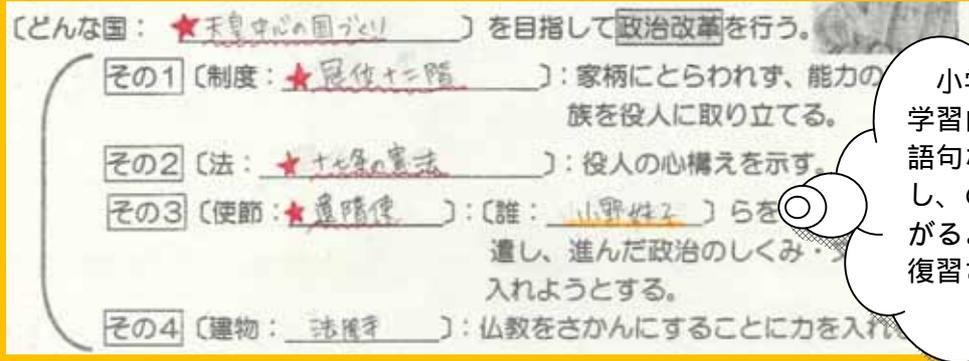 〔どんな国：★天皇中心の国づくり〕を目指して政治改革を行う。
その1〔制度：★冠位十二階〕：家柄にとらわれず、能力の
族を役人に取り立てる。
その2〔法：★十七条の憲法〕：役人の心構えを示す。
その3〔使節：★遣隋使〕：〔誰：小野妹子〕らを
遣し、進んだ政治のしくみ・文
入れようとする。
その4〔建物：法隆寺〕：仏教をさかんにすることに力を入れ
小学
学習
語句
し、
がる
復習